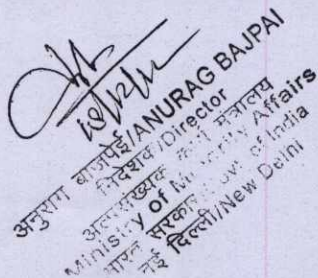 18/12/12
अनुराग बाजपेई/ANURAG BAJPAI
निदेशक/Director
अल्पसंख्यक कार्य मंत्रालय
Ministry of Minority Affairs
भारत सरकार/Govt. of India
नई दिल्ली/New Delhi